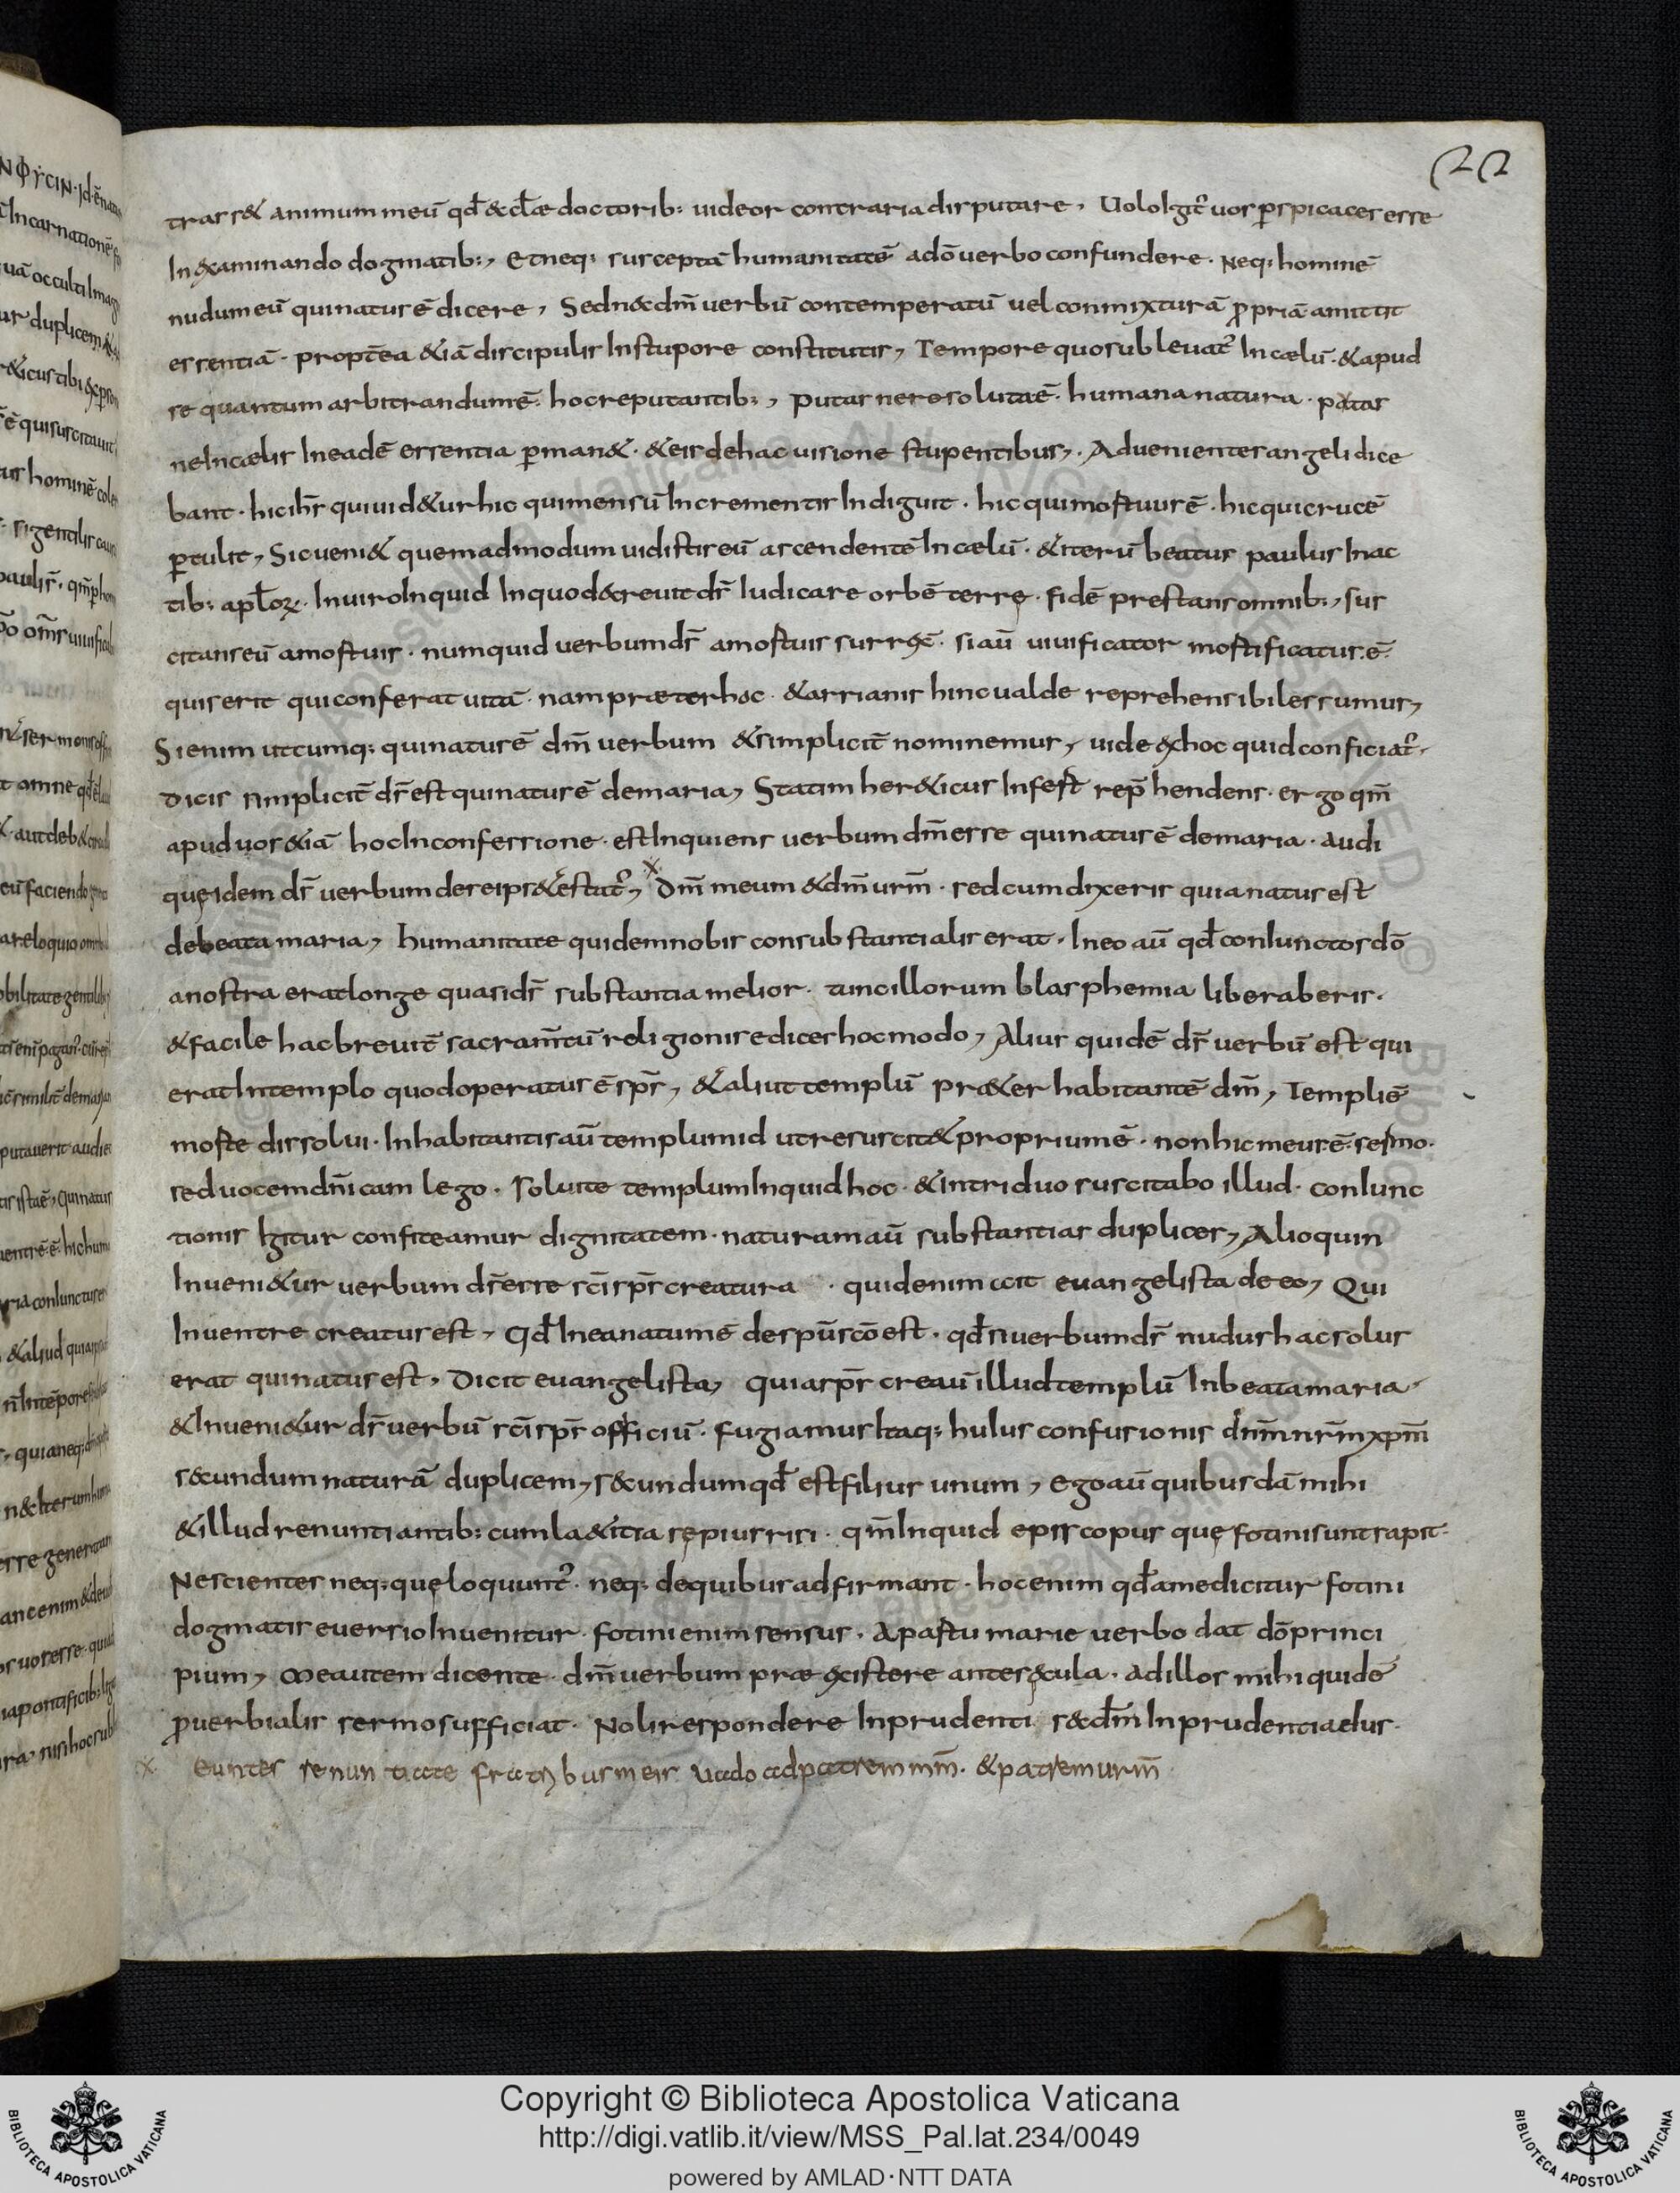 22
trass& animum meū qđ & ecłæ doctorib: uideor contraria disputare, Uolo Igit᷑ uos ꝑspicaces esse
In examinando dogmatib:, Et neq: susceptā humanitatē a dō uerbo confundere. Neq: hominē
nudum eū qui natus ē dicere, Sed n& dm̄ uerbū contemperatū uel conmixturā ꝓpriā amittit
essentiā. propt̄ea &iā discipulis In stupore constitutis, Tempore quo subleuat᷑ In cælū. & apud
se quantum arbitrandum ē. hoc reputantib:, putas ne resoluta ē. humana natura. putas
ne In cælis In eadē essentia ꝑman&. & eis de hac uisione stupentibus,. Aduenientes angeli dice
bant. hic ih̄s qui uid&ur hic qui mensū Incrementis Indiguit. hic qui mortuus ē. hic qui crucē
ꝑtulit, Sic ueni& quemadmodum uidistis eū ascendentē In cælū. & iterū beatus paulus In ac
tib: apłoꝝ. In uiro Inquid In quo decreuit ds̄ Iudicare orbē terrę. fidē prestans omnib:, sus
citans eū a mortuis. numquid uerbum ds̄ a mortuis surrex̄. si aū uiuificator mortificatus ē.
quis erit qui conferat uitā. nam præter hoc. & arrianis hinc ualde reprehensibiles sumus,
Si enim utcumq: qui natus ē dm̄ uerbum & simplicit̄ nominemus, uide ex hoc quid conficiat᷑.
Dicis simplicit̄ ds̄ est qui natus ē de maria, Statim her&icus Insest rep̄hendens. ergo qm̄
apud uos &iā hoc In confessione. est Inquiens uerbum dm̄ esse qui natus ē de maria. Audi
quę idem ds̄ uerbum de se ips& &estat᷑, x Dm̄ meum & dm̄ ur̄m. sed cum dixeris quia natus est
de beata maria, humanitate quidem nobis consubstantialis erat. In eo aū qđ conIunctos dō
a nostra erat longe quasi ds̄ substantia melior. tunc illorum blasphemia liberaberis.
& facile hac breuit̄ sacram̄tū religionis edices hoc modo, Alius quidē ds̄ uerbū est qui
erat In templo quod operatus ē sps̄, & aliut templū præ&er habitantē dm̄, Templi ē
morte dissolui. Inhabitantis aū templum id ut resuscit& proprium ē. non hic meus ē sermo.
sed uocem dn̄icam lego. soluite templum Inquid hoc. & in triduo suscitabo illud. conIunc
tionis Igitur confiteamur dignitatem. naturam aū substantias duplices, Alioquin
Inueni&ur uerbum ds̄ esse sc̄i sps̄ creatura. quid enim ait euangelista de eo, Qui
In uentre creatus est, Qđ In ea natum ē de spū sc̄o est. qđ si uerbum ds̄ nudus hac solus
erat qui natus est, Dicit euangelista, quia sps̄ creaū illud templū In beata maria.
& Inueni&ur ds̄ uerbū sc̄i sps̄ officiū. fugiamus Itaq: huIus confusionis dn̄m nr̄m xp̄m
secundum naturā duplicem, secundum qđ est filius unum, Ego aū quibusdā mihi
& illud renuntiantib: cum la&itia sępius risi. qm̄ Inquid episcopus quę fotini sunt sapit.
Nescientes neq: quę loquunt᷑. neq: de quibus adfirmant. hoc enim qđ a me dicitur fotini
dogmatis euersio Inuenitur. fotini enim sensus. A partu marie uerbo dat dō princi
pium, Me autem dicente. dm̄ uerbum præ existere ante secula. Ad illos mihi quidē
ꝓuerbialis sermo sufficiat. Noli respondere Inprudenti secđm Inprudentia eIus.
x Euntes renuntiate fratribus meis Uado ad patrem mm̄. & patrem ur̄m
Copyright © Biblioteca Apostolica Vaticana
http://digi.vatlib.it/view/MSS_Pal.lat.234/0049
powered by AMLAD·NTT DATA
BIBLIOTECA APOSTOLICA VATICANA
BIBLIOTECA APOSTOLICA VATICANA